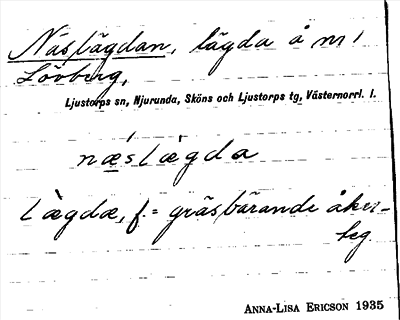 Näslägdan, lägda å n:1
Lövberg,
Ljustorps sn, Njurunda, Sköns och Ljustorps tg, Västernorrl. l.
næslægda
lægdæ, f. = gräsbärande åker-
teg.
ANNA-LISA ERICSON 1935